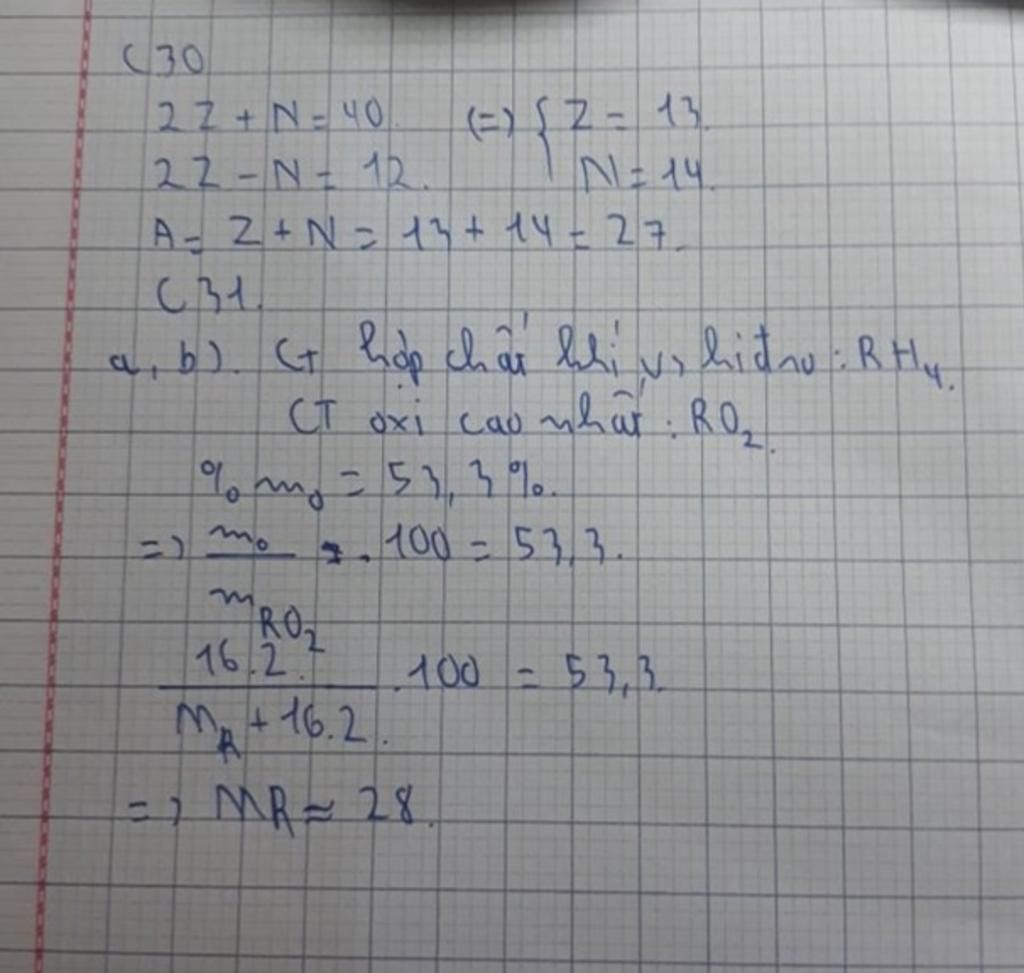 C30
2Z + N = 40. (=) { Z = 13.
2Z - N = 12. N = 14.
A = Z + N = 13 + 14 = 27.
C31.
a, b). CT hợp chất khí vs hiđro: RH₄.
CT oxi cao nhất: RO₂.
% m₀ = 53,3%.
=> m₀ / m RO₂ . 100 = 53,3.
16.2. / M_R + 16.2. . 100 = 53,3.
=> MR ≈ 28.